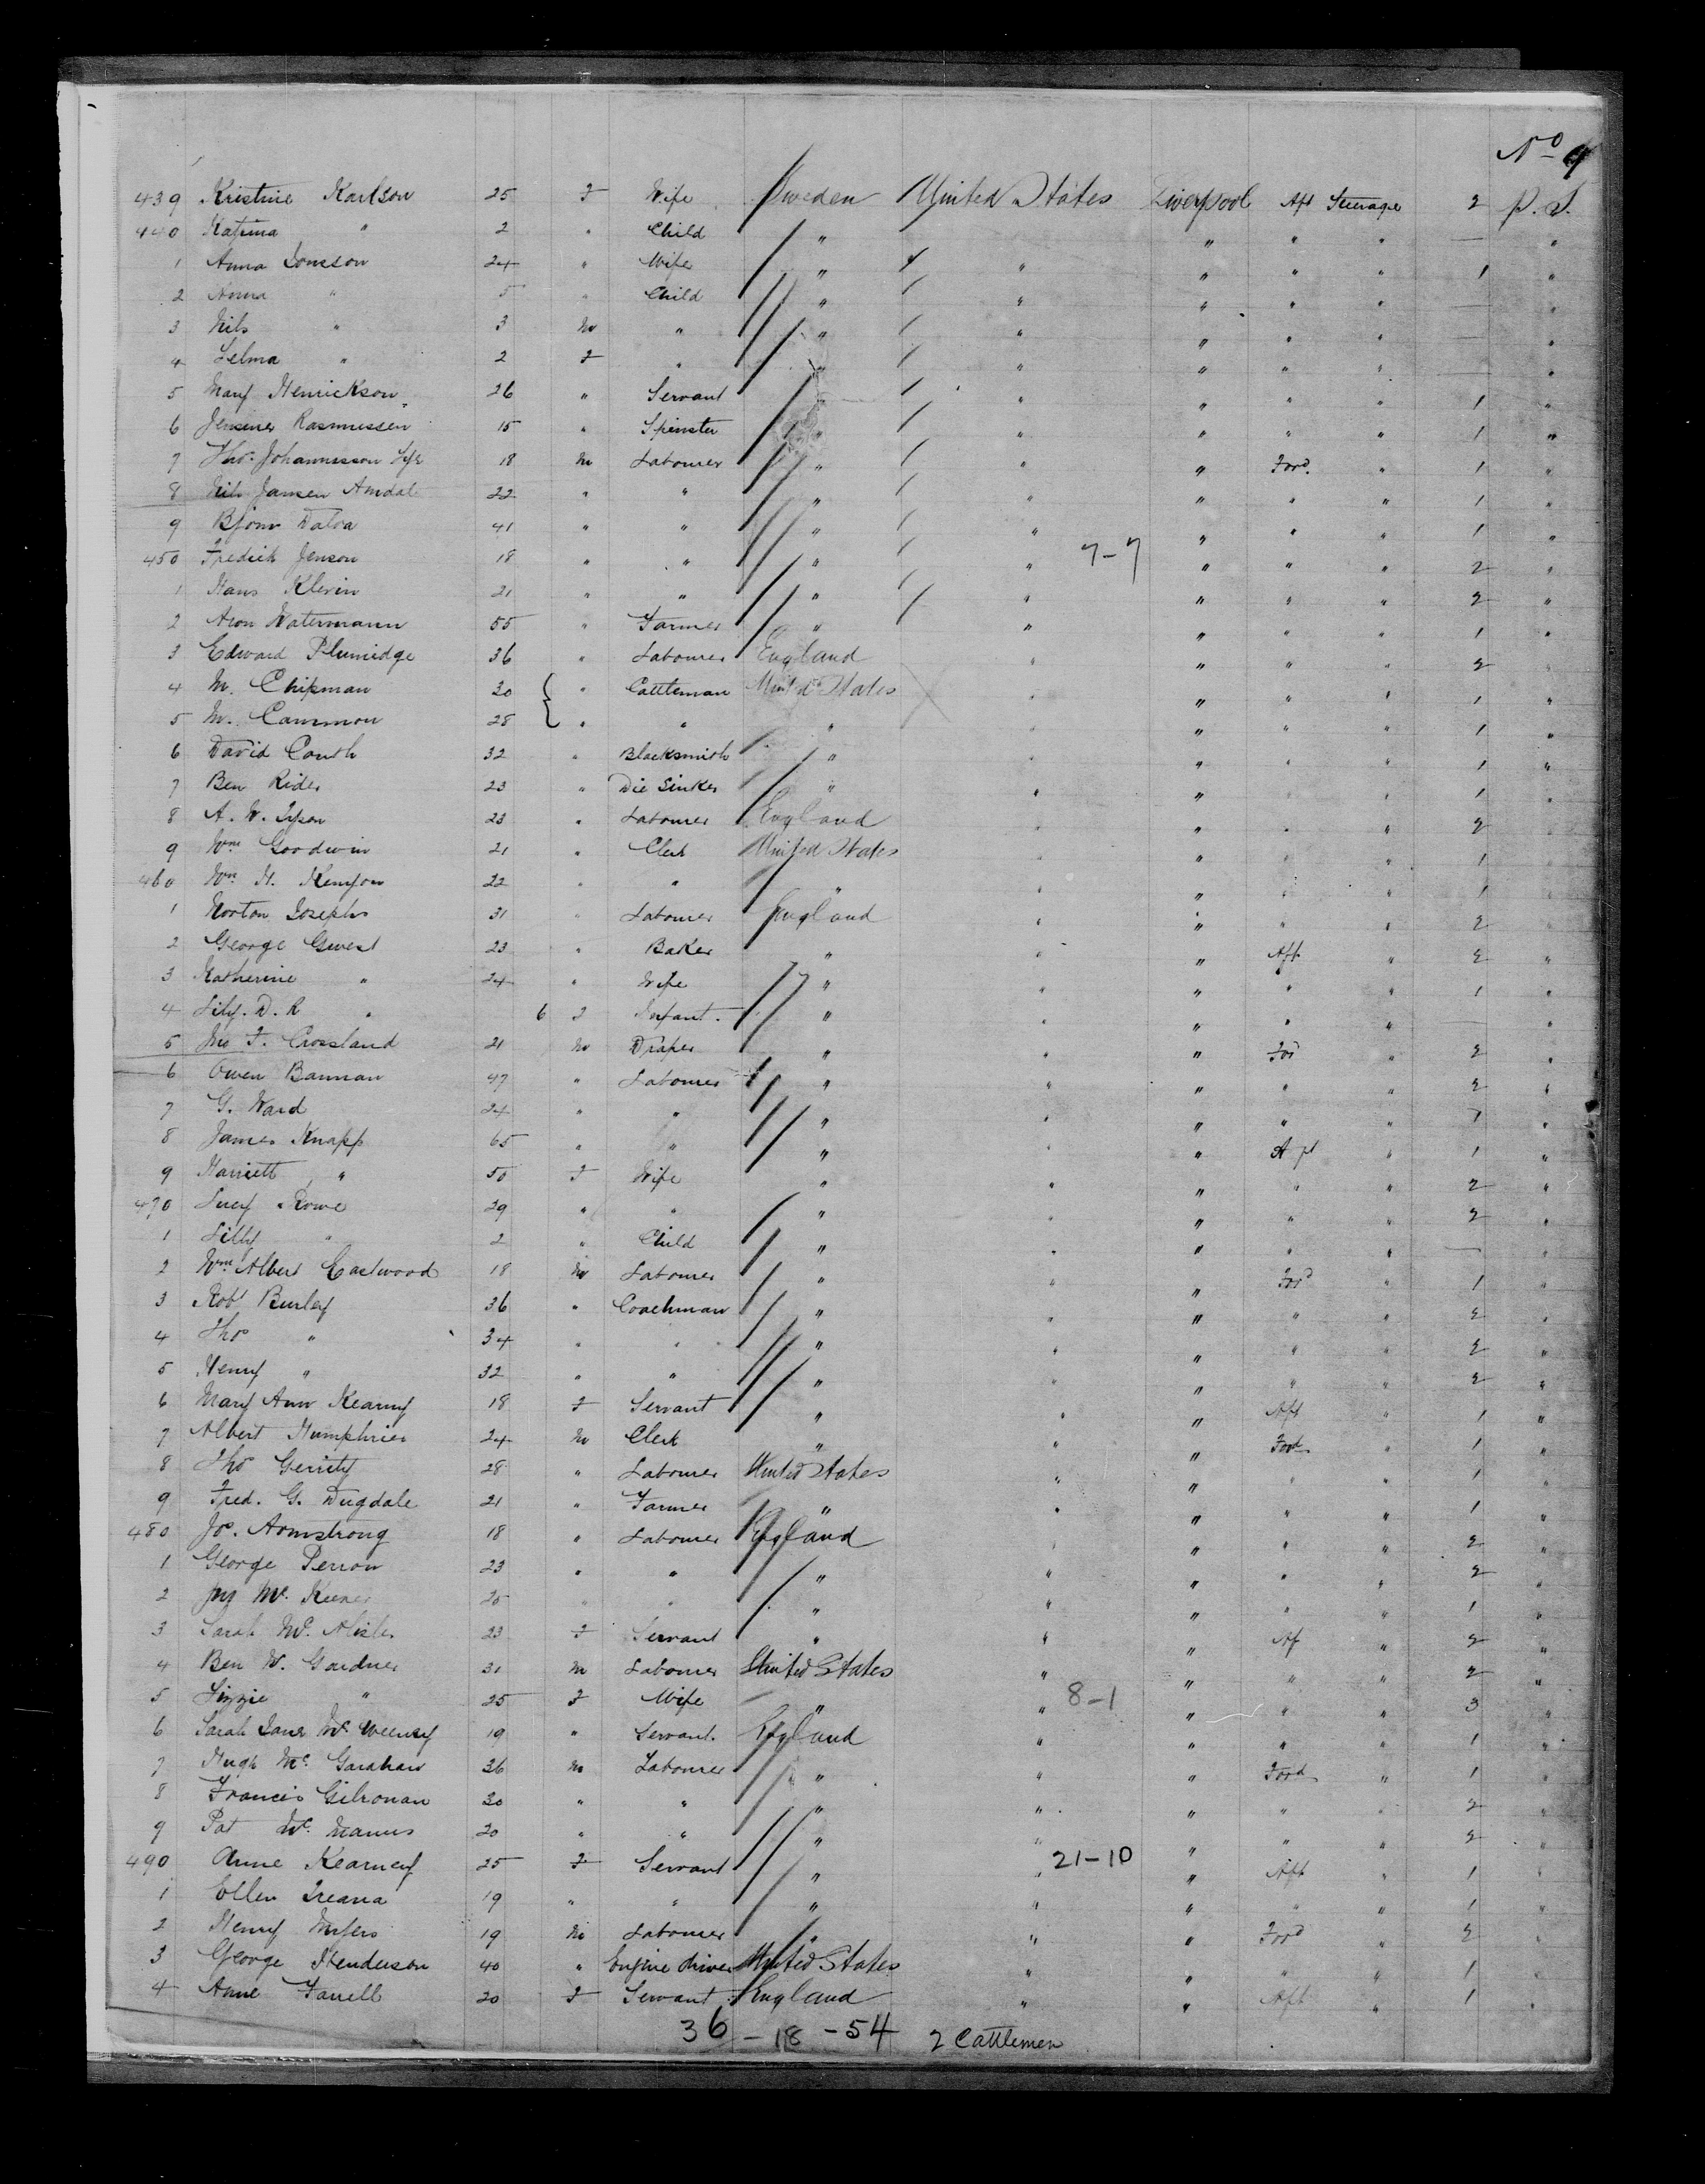 No 9
439 Kristine Karlson 25 F Wife Sweden United States Liverpool Aft Steerage 2 P. S.
440 Katrina " 2 " Child " " " " — "
1 Anna Jonsson 24 " Wife " " " " " 1 "
2 Anna " 5 " Child " " " " " — "
3 Nils " 3 M " " " " " " — "
4 Selma " 2 F " " " " " " — "
5 Mary Henrickson 26 " Servant " " " " " 1 "
6 Rasmussen 15 " Spinster " " " " " 1 "
7 Thos Johannesson 18 M Labourer " " " Ford " 1 "
8 Nils Jansen 22 " " " " " " " 1 "
9 Bjorn 41 " " " " " " " 1 "
450 Fredick Jenson 18 " " " " 7-7 " " " 2 "
1 Hans Klevin 21 " " " " " " " 2 "
2 Aron Watermann 55 " Farmer " " " " " 1 "
3 Edward Plumidge 36 " Labourer England " " " " 2 "
4 M. Chipman 20 { " Cattleman United States " " " ' 1 "
5 M. Cammon 28 { " " " " " " " 1 "
6 David Couth 32 " Blacksmith " " " " " 1 "
7 Ben Rider 23 " Die Sinker " " " " " 1 "
8 A. W. 23 " Labourer England " " " " 2
9 Wm Goodwin 21 " Clerk United States " " " " 1
460 Wm H. Kenyon 22 " " " " " " " 1
1 Morton Josephs 31 " Labourer England " " " " 2
2 George Guest 23 " Baker " " " Aft " 2 "
3 Katherine " 24 " Wife " " " " " 1 "
4 Lily. D. R " 6 F Infant. " " " " " — "
5 Jno F. Crossland 21 M Draper " " " For " 2 "
6 Owen Bannan 47 " Labourer " " " " " 2 "
7 G. Ward 24 " " " " " " " 1 "
8 James Knapp 65 " " " " " Aft " 1 "
9 Harriett " 50 F Wife " " " " " 2 "
470 Lucy Rowe 29 " " " " " " " 2 "
1 Lilly " 2 " Child " " " " " — "
2 Wm Albert Eastwood 18 M Labourer " " " Ford " 1 "
3 Robt Burley 36 " Coachman " " " " " 2 "
4 Thos " 34 " " " " " " " 2 "
5 Henry " 32 " " " " " " " 2 "
6 Mary Ann Kearny 18 F Servant " " " Aft " 1 "
7 Albert Humphries 24 M Clerk " " " Ford " 1 "
8 Thos Gerrity 28 " Labourer United States " " " " 1 "
9 Fred. G. Dugdale 21 " Farmer " " " " " 1 "
480 Jos. Armstrong 18 " Labourer England " " " " 2 "
1 George Perron 23 " " " " " " " 2 "
2 Mc. 20 " " " " " " " 1 "
3 Sarah Mc. 23 F Servant " " " Af " 2 "
4 Ben W. Gardner 31 M Labourer United States " " " " 2 "
5 Lizzie " 25 F Wife " " 8-1 " " " 3 "
6 Sarah Jane Mc Weeney 19 " Servant. England " " " " 1 "
7 Hugh Mc. Garahan 26 M Labourer " " " Ford " 1 "
8 Francis Gilronan 20 " " " " " " " 2 "
9 Pat Mc. Manus 20 " " " " " " " 2 "
490 Anne Kearney 25 F Servant " " 21-10 " Aft " 1 "
1 Ellen 19 " " " " " " " 1 "
2 Henry Myers 19 M Labourer " " " Ford " 2 "
3 George Henderson 40 " Engine driver United States " " " " 1 "
4 Anne Farrell 20 F Servant England " " Aft " 1 "
36 - 18 - 54 2 Cattlemen